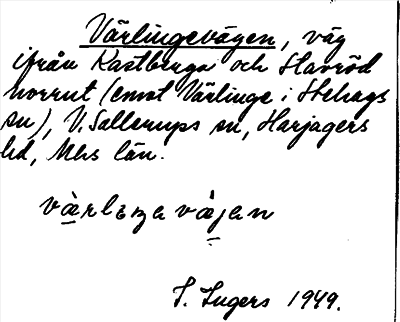 Värlingevägen, väg
ifrån Kastberga och Stavröd
norrut (emot Värlinge i Stehags
sn), V. Sallerups sn, Harjagers
hd, Mhs län.
värlıŋa väjan
S. Ingers 1949.